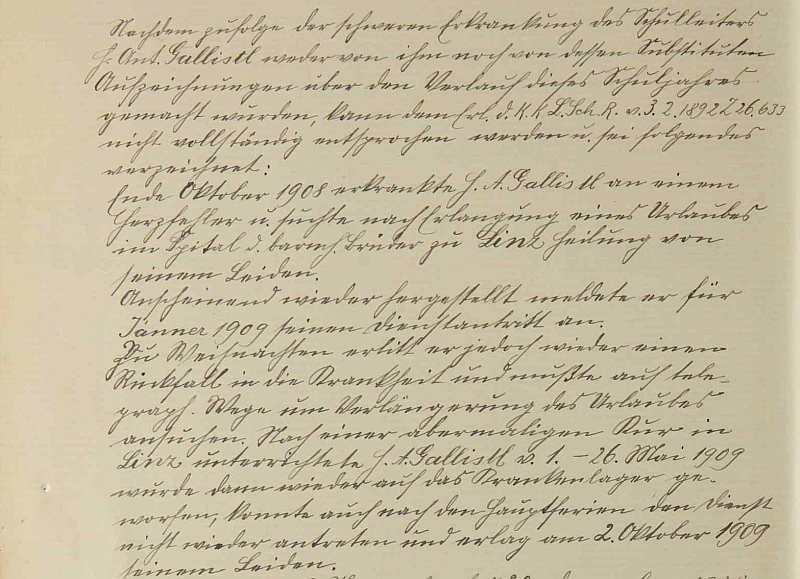 Nachdem zufolge der schweren Erkrankung des Schulleiters
H. Ant. Gallistl weder von ihm noch von dessen Substituten
Aufzeichnungen über den Verlauf dieses Schuljahres
gemacht wurden, kann dem Erl. d. k. k. L. Sch. R. v. 3. 2. 1892 Z 26.633
nicht vollständig entsprochen werden u. sei folgendes
verzeichnet:
Ende Oktober 1908 erkrankte H. A. Gallistl an einem
Herzfehler u. suchte nach Erlangung eines Urlaubes
im Spital d. barmh. Brüder zu Linz Heilung von
seinem Leiden.
Anscheinend wieder hergestellt meldete er für
Jänner 1909 seinen Dienstantritt an.
Zu Weihnachten erlitt er jedoch wieder einen
Rückfall in die Krankheit und mußte auf tele-
graph. Wege um Verlängerung des Urlaubes
ansuchen. Nach einer abermaligen Kur in
Linz unterrichtete H. A. Gallistl v. 1. – 26. Mai 1909
wurde dann wieder auf das Krankenlager ge-
worfen, konnte auch nach den Hauptferien den Dienst
nicht wieder antreten und erlag am 2. Oktober 1909
seinem Leiden.